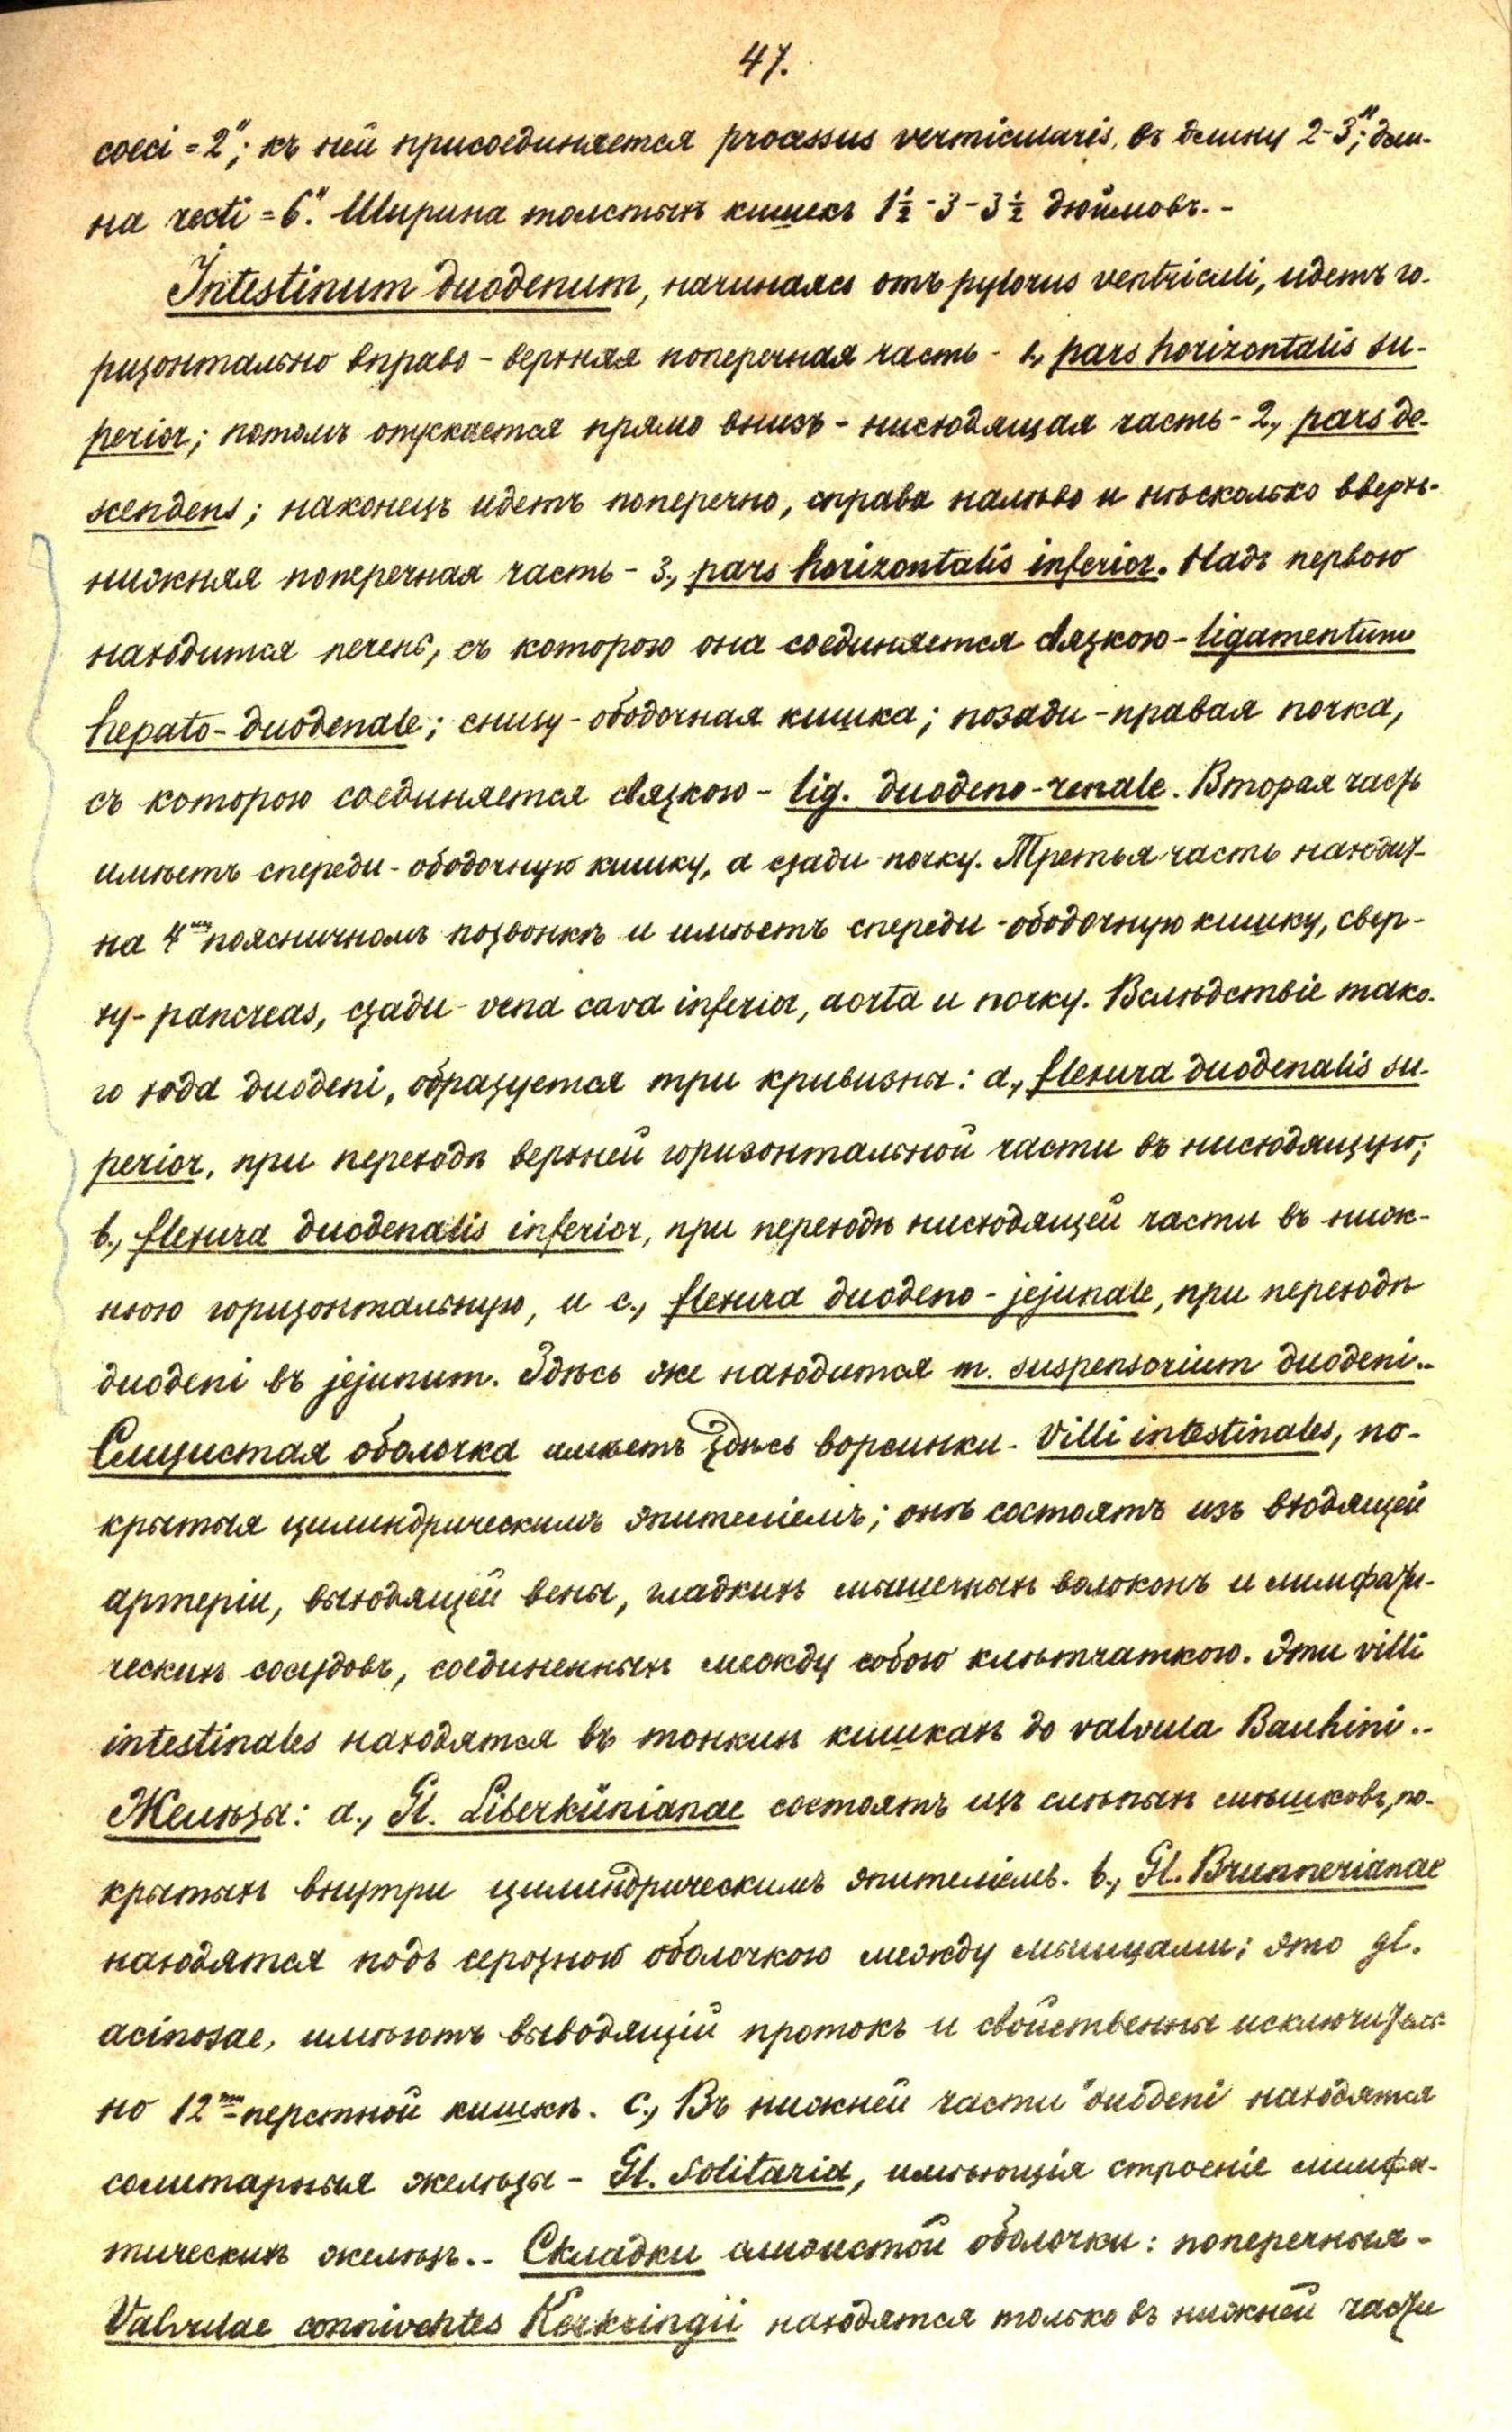 47.
coeci = 2"; къ ней присоединяется processus vermicularis, въ длину 2-3"; дли-
на recti = 6". Ширина толстыхъ кишекъ 1½-3-3½ дюймовъ.-
Intestinum duodenum, начинаясь отъ pylorus ventriculi, идетъ го-
ризонтально вправо - верхняя поперечная часть - 1., pars horizontalis su-
perior; потомъ опускается прямо внизъ - нисходящая часть - 2., pars de-
scendens; наконецъ идетъ поперечно, справа налѣво и нѣсколько вверхъ-
нижняя поперечная часть - 3., pars horizontalis inferior. Надъ первою
находится печень, съ которою она соединяется связкою - ligamentum
hepato-duodenale; снизу - ободочная кишка; позади - правая почка,
съ которою соединяется связкою - lig. duodeno-renale. Вторая часть
имѣетъ спереди - ободочную кишку, а сзади - почку. Третья часть находит-
на 4мъ поясничномъ позвонкѣ и имѣетъ спереди - ободочную кишку, свер-
ху - pancreas, сзади - vena cava inferior, aorta и почку. Вслѣдствіе тако-
го хода duodeni, образуется три кривизны: a., flexura duodenalis su-
perior, при переходѣ верхней горизонтальной части въ нисходящую;
b., flexura duodenalis inferior, при переходѣ нисходящей части въ ниж-
нюю горизонтальную, и c., flexura duodeno-jejunale, при переходѣ
duodeni въ jejunum. Здѣсь же находится m. suspensorium duodeni.-
Слизистая оболочка имѣетъ здѣсь ворсинки - Villi intestinales, по-
крытыя цилиндрическимъ эпителіемъ; онѣ состоятъ изъ входящей
артеріи, выходящей вены, гладкихъ мышечныхъ волоконъ и лимфати-
ческихъ сосудовъ, соединенныхъ между собою клѣтчаткою. Эти villi
intestinales находятся въ тонкихъ кишкахъ до valvula Bauhini.-
Желѣзы: a., Gl. Liberkünianae состоятъ изъ слѣпыхъ мѣшковъ, по-
крытыхъ внутри цилиндрическимъ эпителіемъ. b., Gl. Brunnerianae
находятся подъ серозною оболочкою между мышцами; это gl.
acinosae, имѣютъ выводящій протокъ и свойственны исключитель-
но 12ти-перстной кишкѣ. c., Въ нижней части duodeni находятся
солитарныя желѣзы - Gl. Solitaria, имѣющія строеніе лимфа-
тическихъ желѣзъ.- Складки слизистой оболочки: поперечныя -
Valvulae conniventes Kerkringii находятся только въ нижней части